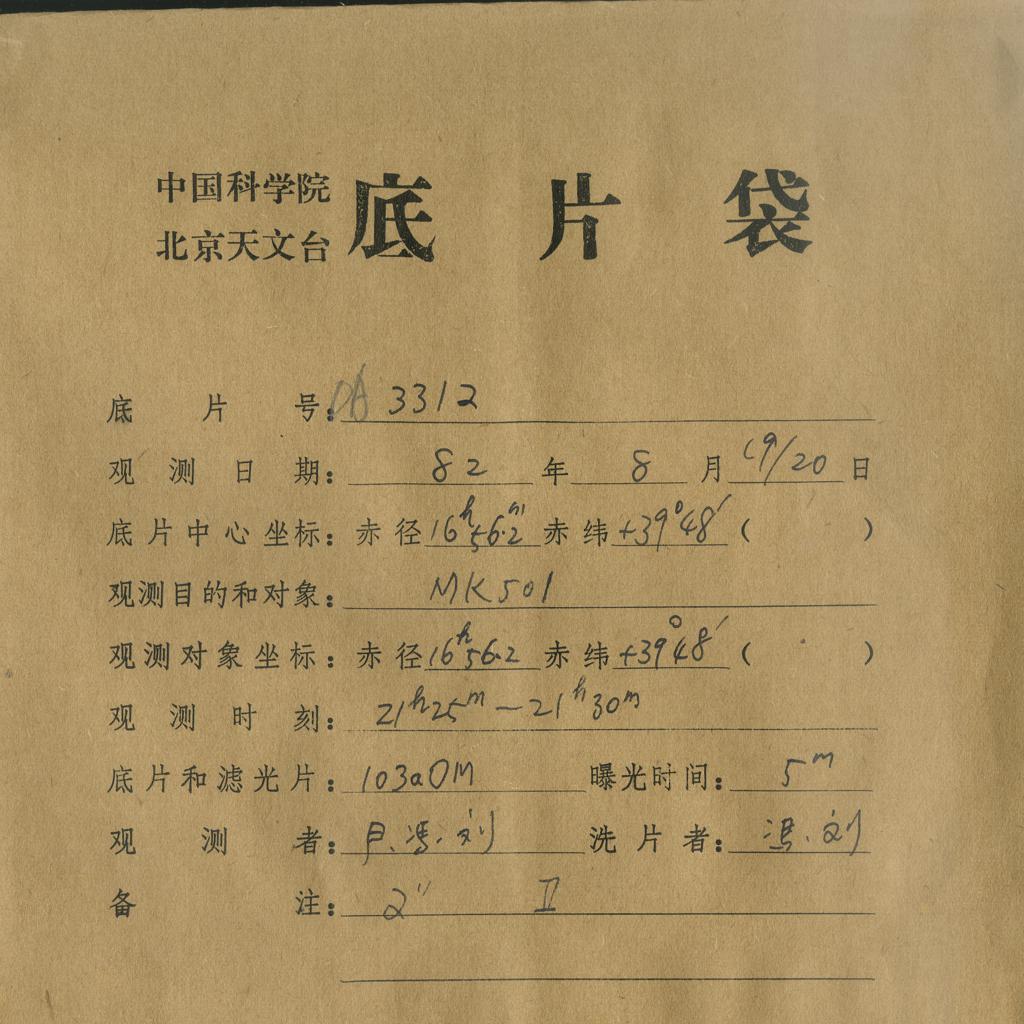 中国科学院
北京天文台
底片袋
底片号: 3312
观测日期: 82 年 8 月 19/20 日
底片中心坐标: 赤径 16ʰ56.2ᵐ 赤纬 +39°48′ ( )
观测目的和对象: MK501
观测对象坐标: 赤径 16ʰ56.2 赤纬 +39°48′ ( )
观测时刻: 21ʰ25ᵐ—21ʰ30ᵐ
底片和滤光片: 103aOM 曝光时间: 5ᵐ
观测者: 尸.冯.刘 洗片者: 冯.刘
备注: 2″ II